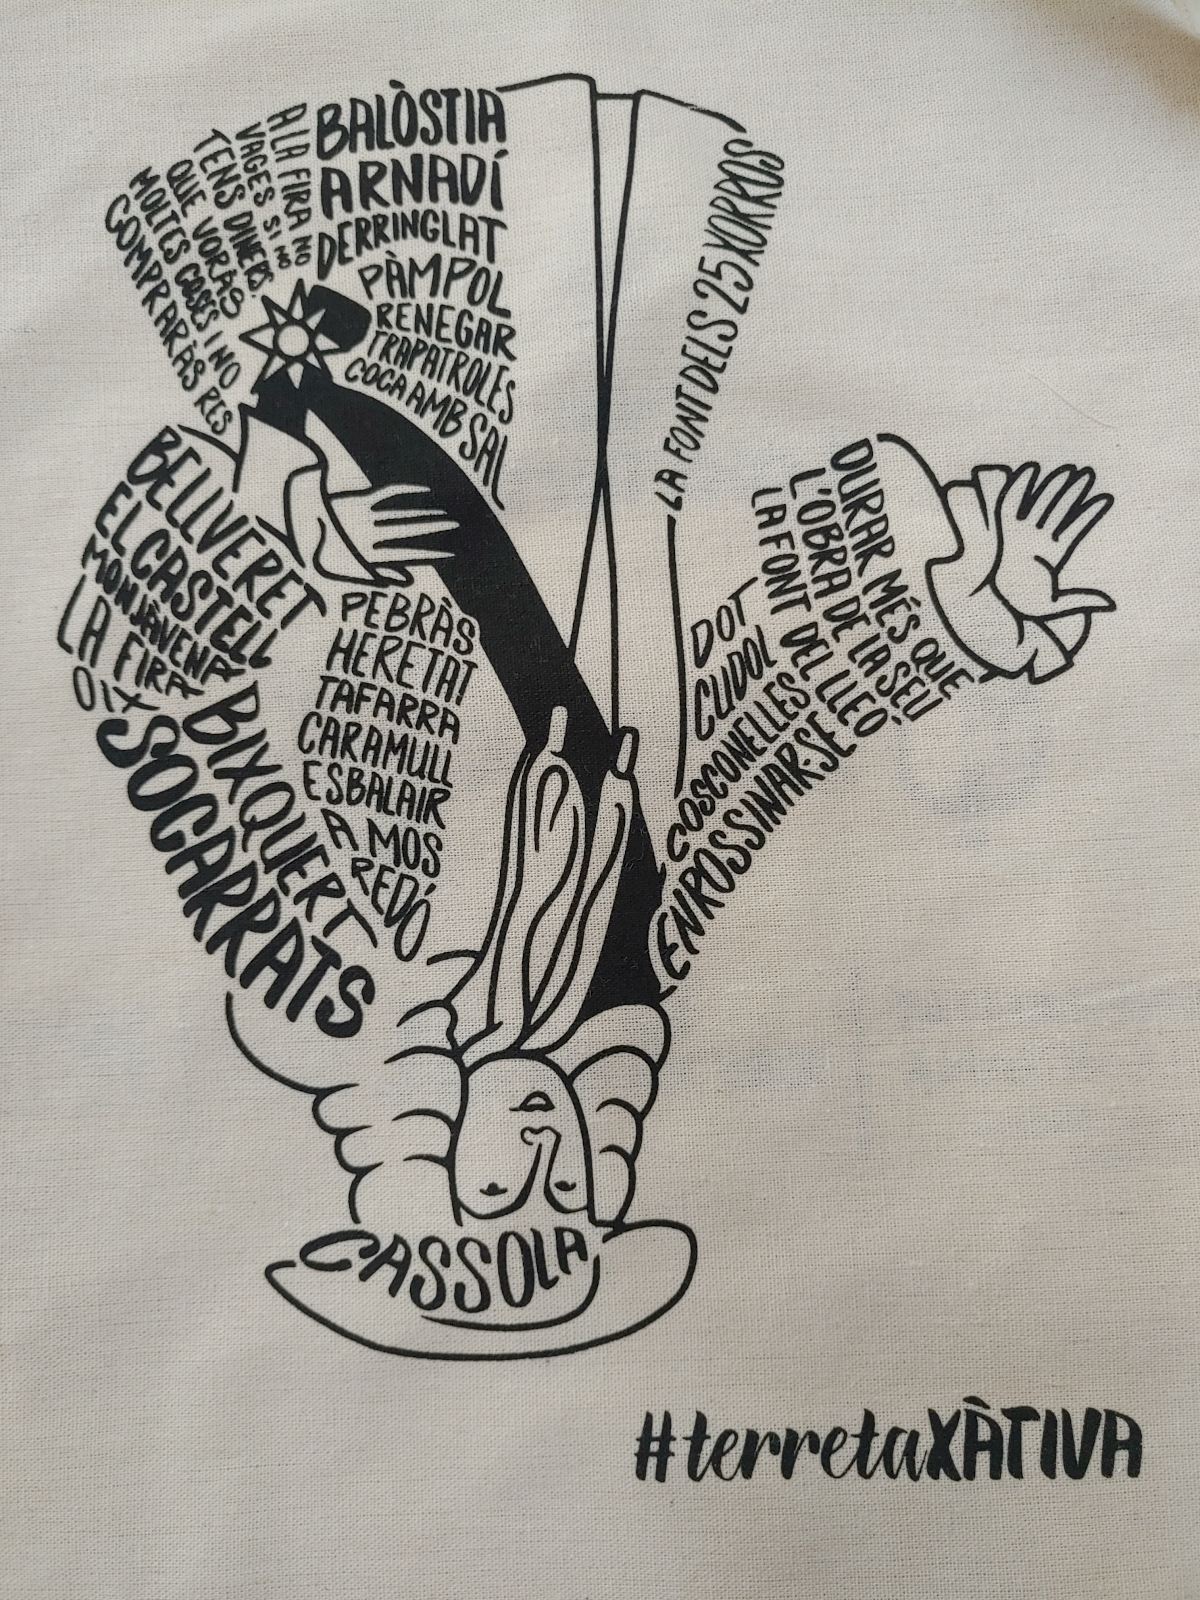 A LA FIRA NO
VAGES SI NO
TENS DINERS.
QUE VORÀS
MOLTES COSES I NO
COMPRARÀS RES
BALÒSTIA
ARNADÍ
DERRINGLAT
PÀMPOL
RENEGAR
TRAPATROLES
COCA AMB SAL
LA FONT DELS 25 XORROS
BELLVERET
EL CASTELL
MONJÀVENA
LA FIRA
OIX
BIXQUERT
SOCARRATS
PEBRÀS
HERETAT
TAFARRA
CARAMULL
ESBALAIR
A MOS
REDÓ
DURAR MÉS QUE
L'OBRA DE LA SEU
LA FONT DEL LLEÓ
DOT
CUDOL
COSCONELLES
ENROSSINAR-SE
CASSOLA
#terretaXÀTIVA